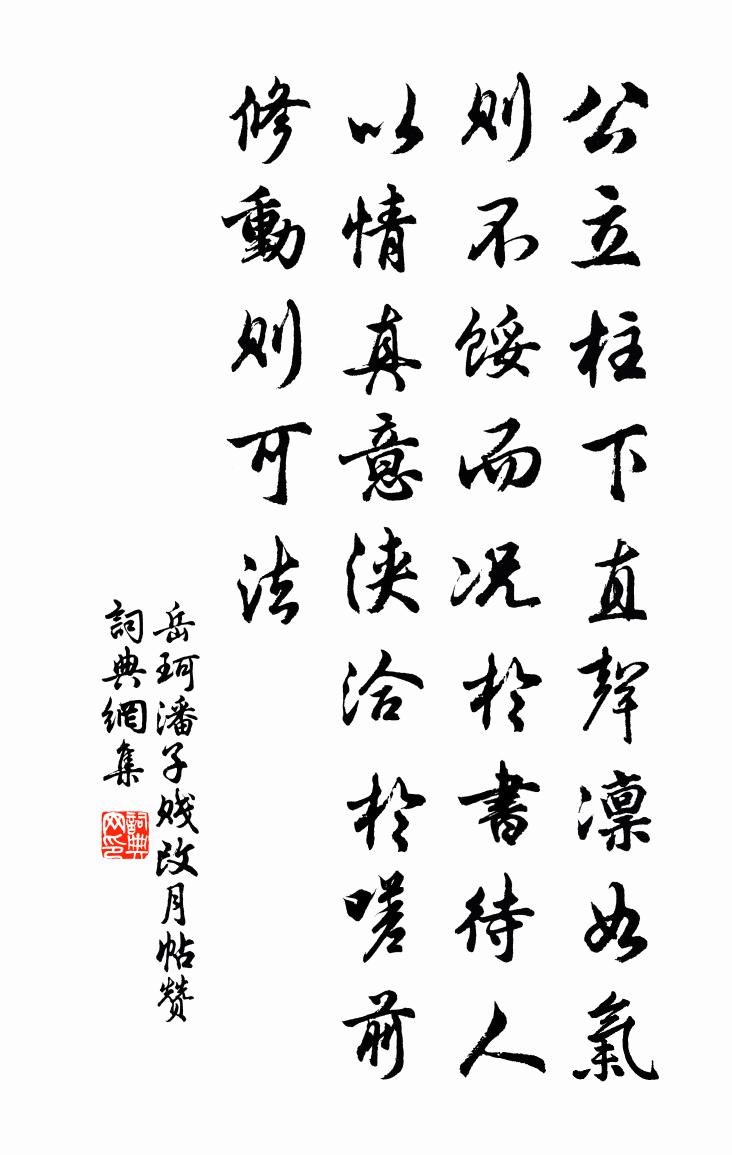 公立柱下直聲凛如氣
則不餒而況於書待人
以情真意浹洽於嗟前
修動則可法
岳珂潘子賤改月帖贊
詞典網集
詞典网印